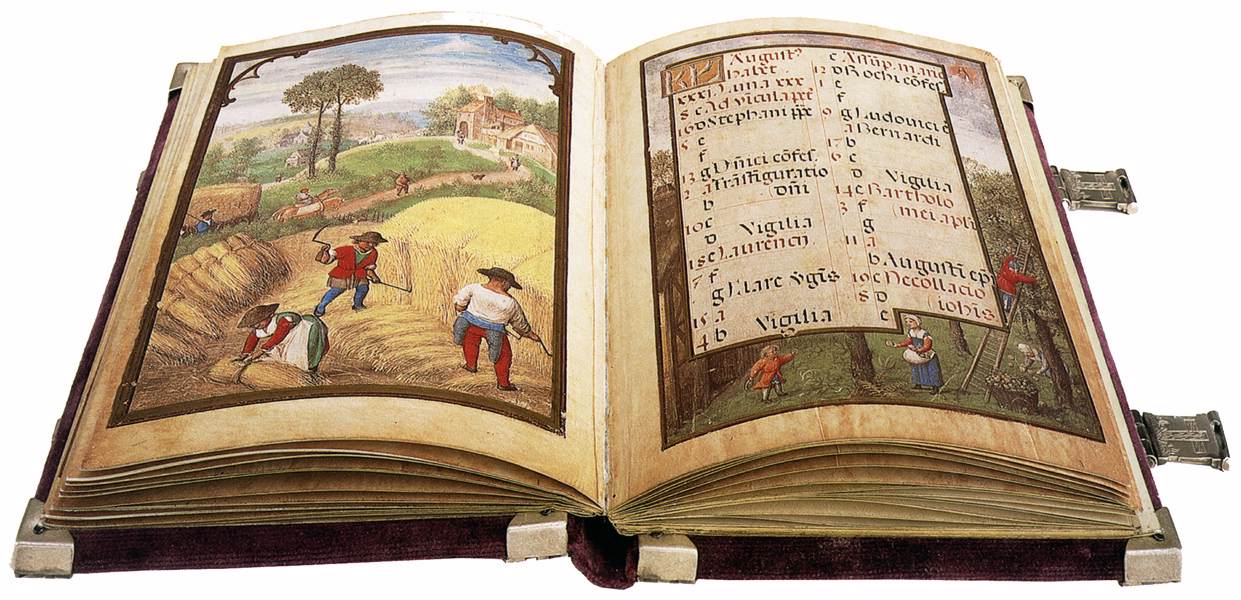 KL Augustꝰ
habet
xxxi Luna xxx
8 c Ad vĩcula pet
16 d Stephani ppe
5 e
f
13 g Dñici cõfes.
2 a Trãsfiguratio
b dñi
10 c
d Vigilia
18 e Laurencij
7 f
g Clare vgĩs
15 a
4 b Vigilia
c Assũp. marie
12 d Rochi cõfes
1 e
f
9 g Ludovici e
a Bernardi
17 b
6 c
d Vigilia
14 e Bartholo
3 f mei apli
g
11 a
b Augustĩ ep
19 c Decollacio
8 d iohĩs
e